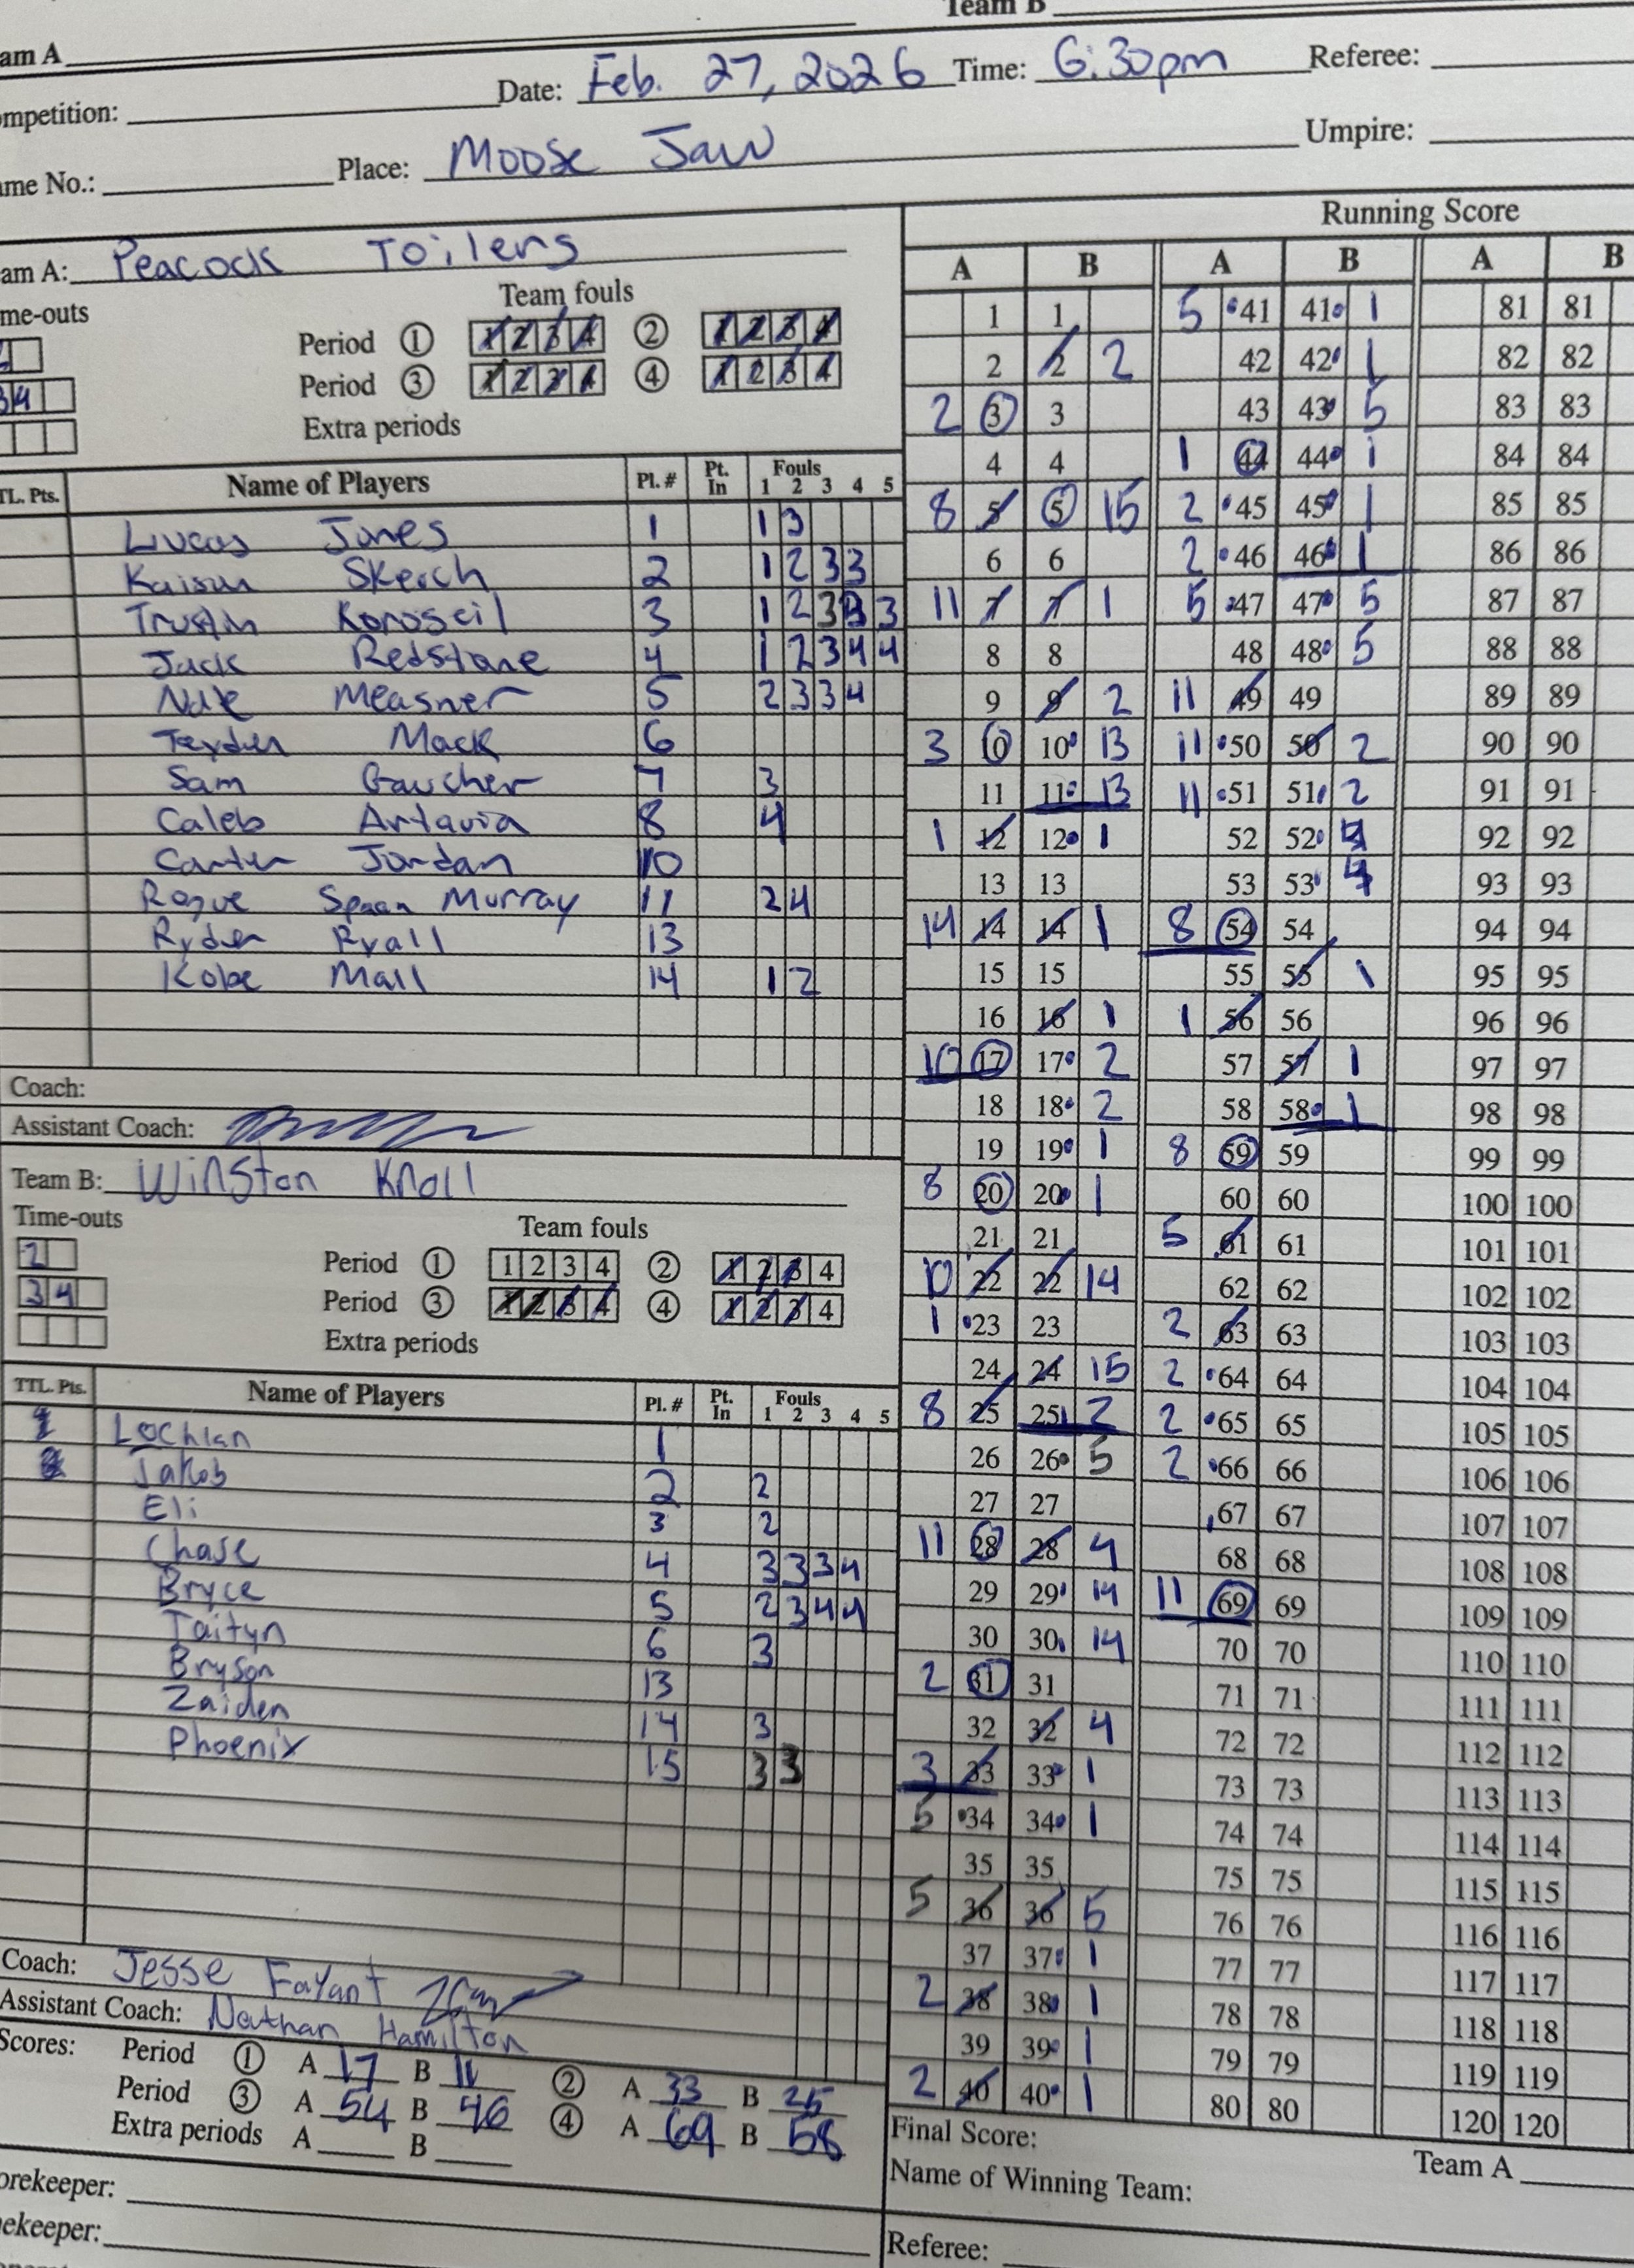 Team B
am A
Date: Feb. 27, 2026 Time: 6:30pm Referee:
ompetition:
Place: Moose Jaw Umpire:
ame No.:
Running Score
am A: Peacock Toilers
me-outs
Team fouls
Period ① 1 2 3 4 ② 1 2 3 4
34
Period ③ 1 2 3 4 ④ 1 2 3 4
Extra periods
TL. Pts. Name of Players Pl. # Pt. In Fouls 1 2 3 4 5
Lucas Jones 1 1 3
Skerch 2 1 2 3 3
3 1 2 3 3 3
Jack Redstone 4 1 2 3 4 4
Measner 5 2 3 3 4
Mack 6
Sam Gaucher 7 3
Caleb Artavia 8 4
Carter Jordan 10
Rogue Spaan Murray 11 2 4
Ryder Ryall 13
Kobe Mall 14 1 2
Coach:
Assistant Coach:
Team B: Winston Knoll
Time-outs
Team fouls
2
Period ① 1 2 3 4 ② 1 2 3 4
3 4
Period ③ 1 2 3 4 ④ 1 2 3 4
Extra periods
TTL. Pts. Name of Players Pl. # Pt. In Fouls 1 2 3 4 5
Lochlan 1
Jakob 2 2
Eli 3 2
Chase 4 3 3 3 4
Bryce 5 2 3 4 4
Taityn 6 3
Bryson 13
Zaiden 14 3
Phoenix 15 3 3
Coach: Jesse Fayant
Assistant Coach: Nathan Hamilton
Scores: Period ① A 17 B 11 ② A 33 B 25
Period ③ A 54 B 46 ④ A 69 B 58
Extra periods A B
orekeeper:
ekeeper:
A B A B A B
1 1 5 41 41 1 81 81
2 2 2 42 42 1 82 82
2 3 3 43 43 5 83 83
4 4 1 44 44 1 84 84
8 5 5 15 2 45 45 1 85 85
6 6 2 46 46 1 86 86
11 7 7 1 5 47 47 5 87 87
8 8 48 48 5 88 88
9 9 2 11 49 49 89 89
3 10 10 13 11 50 50 2 90 90
11 11 13 11 51 51 2 91 91
1 12 12 1 52 52 4 92 92
13 13 53 53 4 93 93
14 14 14 1 8 54 54 94 94
15 15 55 55 1 95 95
16 16 1 1 56 56 96 96
10 17 17 2 57 57 1 97 97
18 18 2 58 58 1 98 98
19 19 1 8 59 59 99 99
8 20 20 1 60 60 100 100
21 21 5 61 61 101 101
10 22 22 14 62 62 102 102
1 23 23 2 63 63 103 103
24 24 15 2 64 64 104 104
8 25 25 2 2 65 65 105 105
26 26 5 2 66 66 106 106
27 27 67 67 107 107
11 28 28 4 68 68 108 108
29 29 14 11 69 69 109 109
30 30 14 70 70 110 110
2 31 31 71 71 111 111
32 32 4 72 72 112 112
3 33 33 1 73 73 113 113
5 34 34 1 74 74 114 114
35 35 75 75 115 115
5 36 36 5 76 76 116 116
37 37 1 77 77 117 117
2 38 38 1 78 78 118 118
39 39 1 79 79 119 119
2 40 40 1 80 80 120 120
Final Score:
Team A
Name of Winning Team:
Referee: